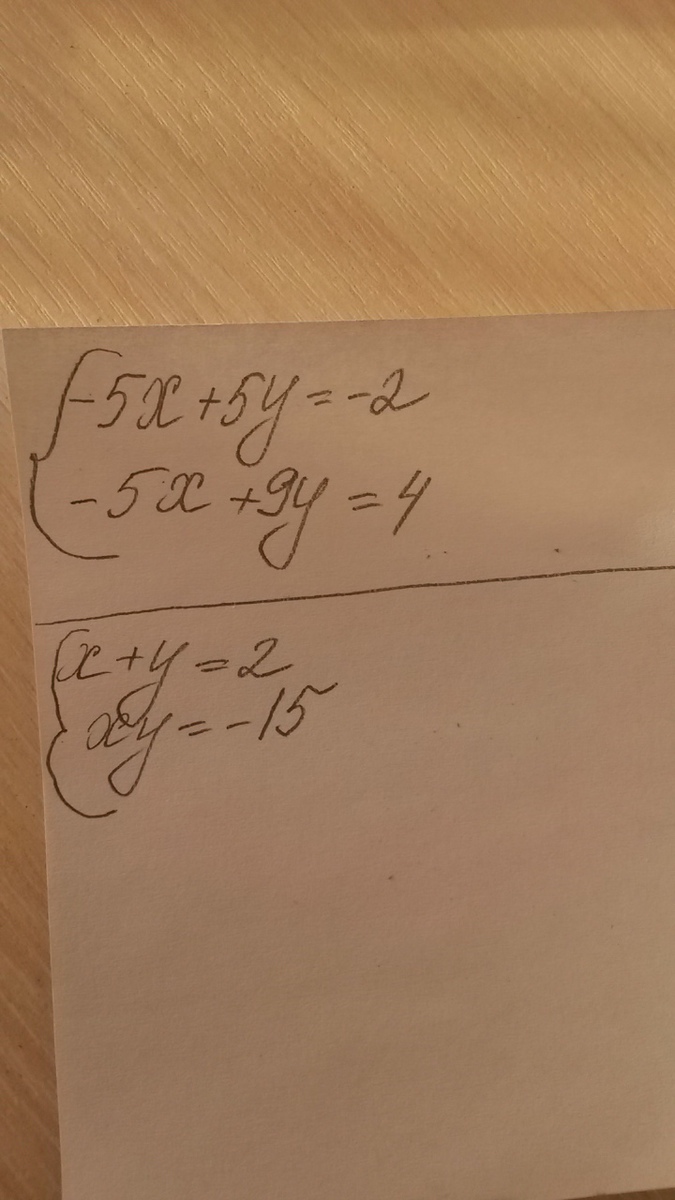 -5x+5y=-2
-5x+9y=4
x+y=2
xy=-15